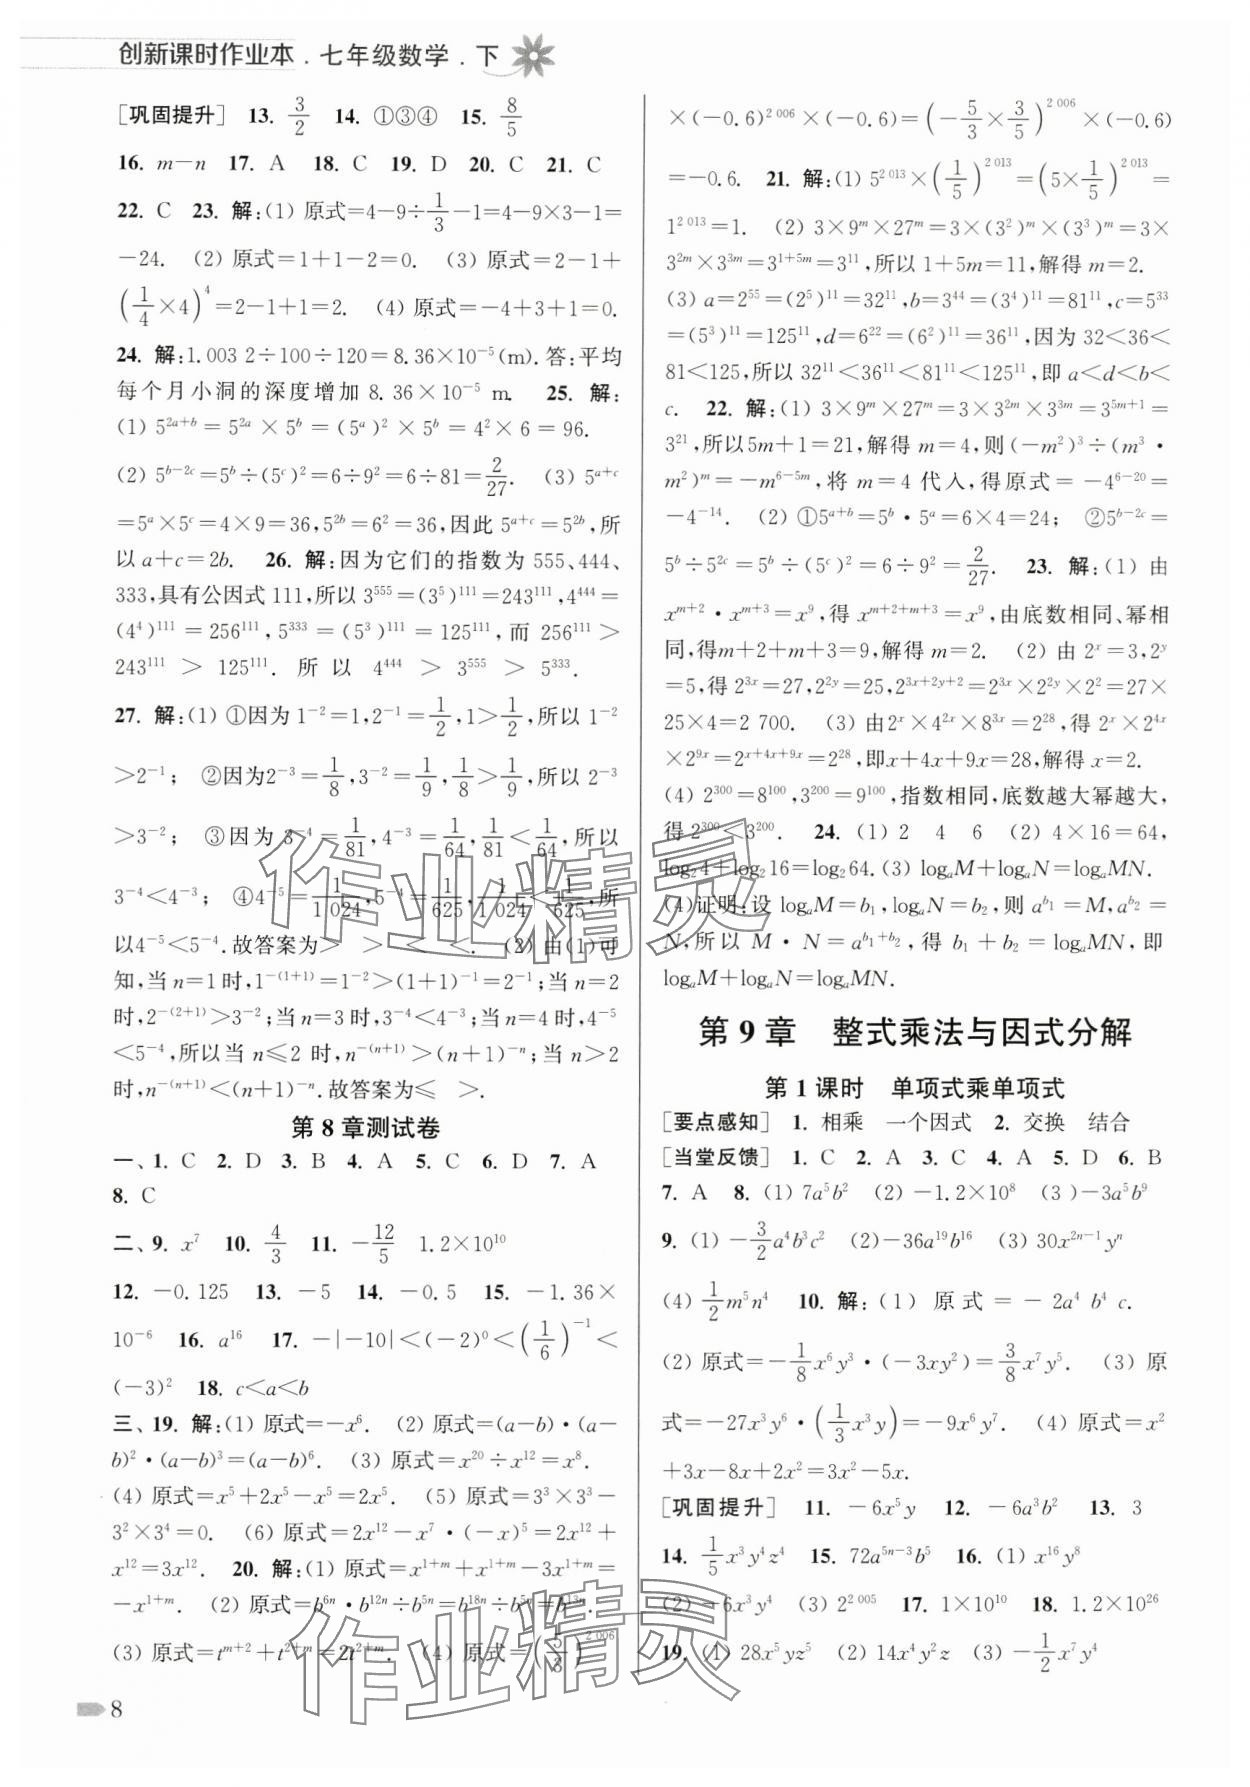 创新课时作业本．七年级数学．下
[巩固提升] 13. 3/2 14. ①③④ 15. 8/5
16. m－n 17. A 18. C 19. D 20. C 21. C
22. C 23. 解:(1) 原式＝4－9÷1/3－1＝4－9×3－1＝
－24. (2) 原式＝1＋1－2＝0. (3) 原式＝2－1＋
(1/4×4)^4＝2－1＋1＝2. (4) 原式＝－4＋3＋1＝0.
24. 解:1.003 2÷100÷120＝8.36×10^－5(m).答:平均
每个月小洞的深度增加 8.36×10^－5 m. 25. 解:
(1) 5^(2a＋b)＝5^2a×5^b＝(5^a)^2×5^b＝4^2×6＝96.
(2) 5^(b－2c)＝5^b÷(5^c)^2＝6÷9^2＝6÷81＝2/27. (3) 5^(a＋c)
＝5^a×5^c＝4×9＝36,5^2b＝6^2＝36,因此 5^(a＋c)＝5^2b,所
以 a＋c＝2b. 26. 解:因为它们的指数为 555、444、
333,具有公因式 111,所以 3^555＝(3^5)^111＝243^111,4^444＝
(4^4)^111＝256^111,5^333＝(5^3)^111＝125^111,而 256^111＞
243^111＞125^111.所以 4^444＞3^555＞5^333.
27. 解:(1) ①因为 1^－2＝1,2^－1＝1/2,1＞1/2,所以 1^－2
＞2^－1; ②因为2^－3＝1/8,3^－2＝1/9,1/8＞1/9,所以 2^－3
＞3^－2; ③因为 3^－4＝1/81,4^－3＝1/64,1/81＜1/64,所以
3^－4＜4^－3; ④4^－5＝1/1 024,5^－4＝1/625,1/1 024＜1/625,所
以4^－5＜5^－4.故答案为＞ ＞ ＜ ＜. (2) 由(1)可
知,当 n＝1 时,1^－(1＋1)＝1^－2＞(1＋1)^－1＝2^－1;当 n＝2
时,2^－(2＋1)＞3^－2;当 n＝3 时,3^－4＜4^－3;当 n＝4 时,4^－5
＜5^－4,所以当 n≤2 时,n^－(n＋1)＞(n＋1)^－n;当 n＞2
时,n^－(n＋1)＜(n＋1)^－n.故答案为≤ ＞.
第 8 章测试卷
一、1. C 2. D 3. B 4. A 5. C 6. D 7. A
8. C
二、9. x^7 10. 4/3 11. －12/5 1.2×10^10
12. －0.125 13. －5 14. －0.5 15. －1.36×
10^－6 16. a^16 17. －|－10|＜(－2)^0＜(1/6)^－1＜
(－3)^2 18. c＜a＜b
三、19. 解:(1) 原式＝－x^6. (2) 原式＝(a－b)·(a－
b)^2·(a－b)^3＝(a－b)^6. (3) 原式＝x^20÷x^12＝x^8.
(4) 原式＝x^5＋2x^5－x^5＝2x^5. (5) 原式＝3^3×3^3－
3^2×3^4＝0. (6) 原式＝2x^12－x^7·(－x)^5＝2x^12＋
x^12＝3x^12. 20. 解:(1) 原式＝x^(1＋m)＋x^(1＋m)－3x^(1＋m)＝
－x^(1＋m). (2) 原式＝b^6n·b^12n÷b^5n＝b^18n÷b^5n＝b^13n.
(3) 原式＝t^(m＋2)＋t^(2＋m)＝2t^(2＋m). (4) 原式＝(－5/3)^2 006
×(－0.6)^2 006×(－0.6)＝(－5/3×3/5)^2 006×(－0.6)
＝－0.6. 21. 解:(1) 5^2 013×(1/5)^2 013＝(5×1/5)^2 013＝
1^2 013＝1. (2) 3×9^m×27^m＝3×(3^2)^m×(3^3)^m＝3×
3^2m×3^3m＝3^(1＋5m)＝3^11,所以 1＋5m＝11,解得 m＝2.
(3) a＝2^55＝(2^5)^11＝32^11,b＝3^44＝(3^4)^11＝81^11,c＝5^33
＝(5^3)^11＝125^11,d＝6^22＝(6^2)^11＝36^11,因为 32＜36＜
81＜125,所以 32^11＜36^11＜81^11＜125^11,即 a＜d＜b＜
c. 22. 解:(1) 3×9^m×27^m＝3×3^2m×3^3m＝3^(5m＋1)＝
3^21,所以5m＋1＝21,解得 m＝4,则(－m^2)^3÷(m^3·
m^2)^m＝－m^(6－5m),将 m＝4 代入,得原式＝－4^(6－20)＝
－4^－14. (2) ①5^(a＋b)＝5^b·5^a＝6×4＝24; ②5^(b－2c)＝
5^b÷5^2c＝5^b÷(5^c)^2＝6÷9^2＝2/27. 23. 解:(1) 由
x^(m＋2)·x^(m＋3)＝x^9,得 x^(m＋2＋m＋3)＝x^9,由底数相同、幂相
同,得m＋2＋m＋3＝9,解得 m＝2. (2) 由 2^x＝3,2^y
＝5,得 2^3x＝27,2^2y＝25,2^(3x＋2y＋2)＝2^3x×2^2y×2^2＝27×
25×4＝2 700. (3) 由2^x×4^2x×8^3x＝2^28,得 2^x×2^4x
×2^9x＝2^(x＋4x＋9x)＝2^28,即x＋4x＋9x＝28,解得 x＝2.
(4) 2^300＝8^100,3^200＝9^100,指数相同,底数越大幂越大,
得 2^300＜3^200. 24. (1) 2 4 6 (2) 4×16＝64,
log₂4＋log₂16＝log₂64.(3) logₐM＋logₐN＝logₐMN.
(4)证明:设 logₐM＝b₁,logₐN＝b₂,则 a^b₁＝M,a^b₂＝
N,所以 M·N＝a^(b₁＋b₂),得 b₁＋b₂＝logₐMN,即
logₐM＋logₐN＝logₐMN.
第 9 章 整式乘法与因式分解
第 1 课时 单项式乘单项式
[要点感知] 1. 相乘 一个因式 2. 交换 结合
[当堂反馈] 1. C 2. A 3. C 4. A 5. D 6. B
7. A 8. (1) 7a^5b^2 (2) －1.2×10^8 (3 )－3a^5b^9
9. (1) －3/2a^4b^3c^2 (2)－36a^19b^16 (3) 30x^(2n－1)y^n
(4) 1/2m^5n^4 10. 解:(1) 原式＝－2a^4 b^4 c.
(2) 原式＝－1/8x^6y^3·(－3xy^2)＝3/8x^7y^5. (3) 原
式＝－27x^3y^6·(1/3x^3y)＝－9x^6y^7. (4) 原式＝x^2
＋3x－8x＋2x^2＝3x^2－5x.
[巩固提升] 11. －6x^5y 12. －6a^3b^2 13. 3
14. 1/5x^3y^4z^4 15. 72a^(5n－3)b^5 16. (1) x^16y^8
(2) －6x^3y^4 (3) 2^2 005 17. 1×10^10 18. 1.2×10^26
19. (1) 28x^5yz^5 (2) 14x^4y^2z (3) －1/2x^7y^4
8
作业精灵
作业精灵